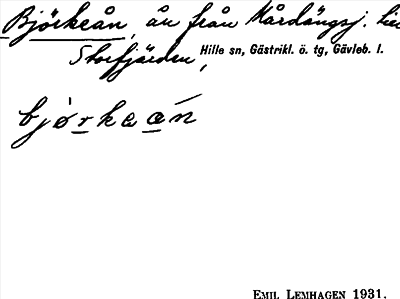 Björkeån, ån från Mårdängsj. till
Storfjärden,
Hille sn, Gästrikl. ö. tg, Gävleb. l.
bjørkaán
EMIL LEMHAGEN 1931.